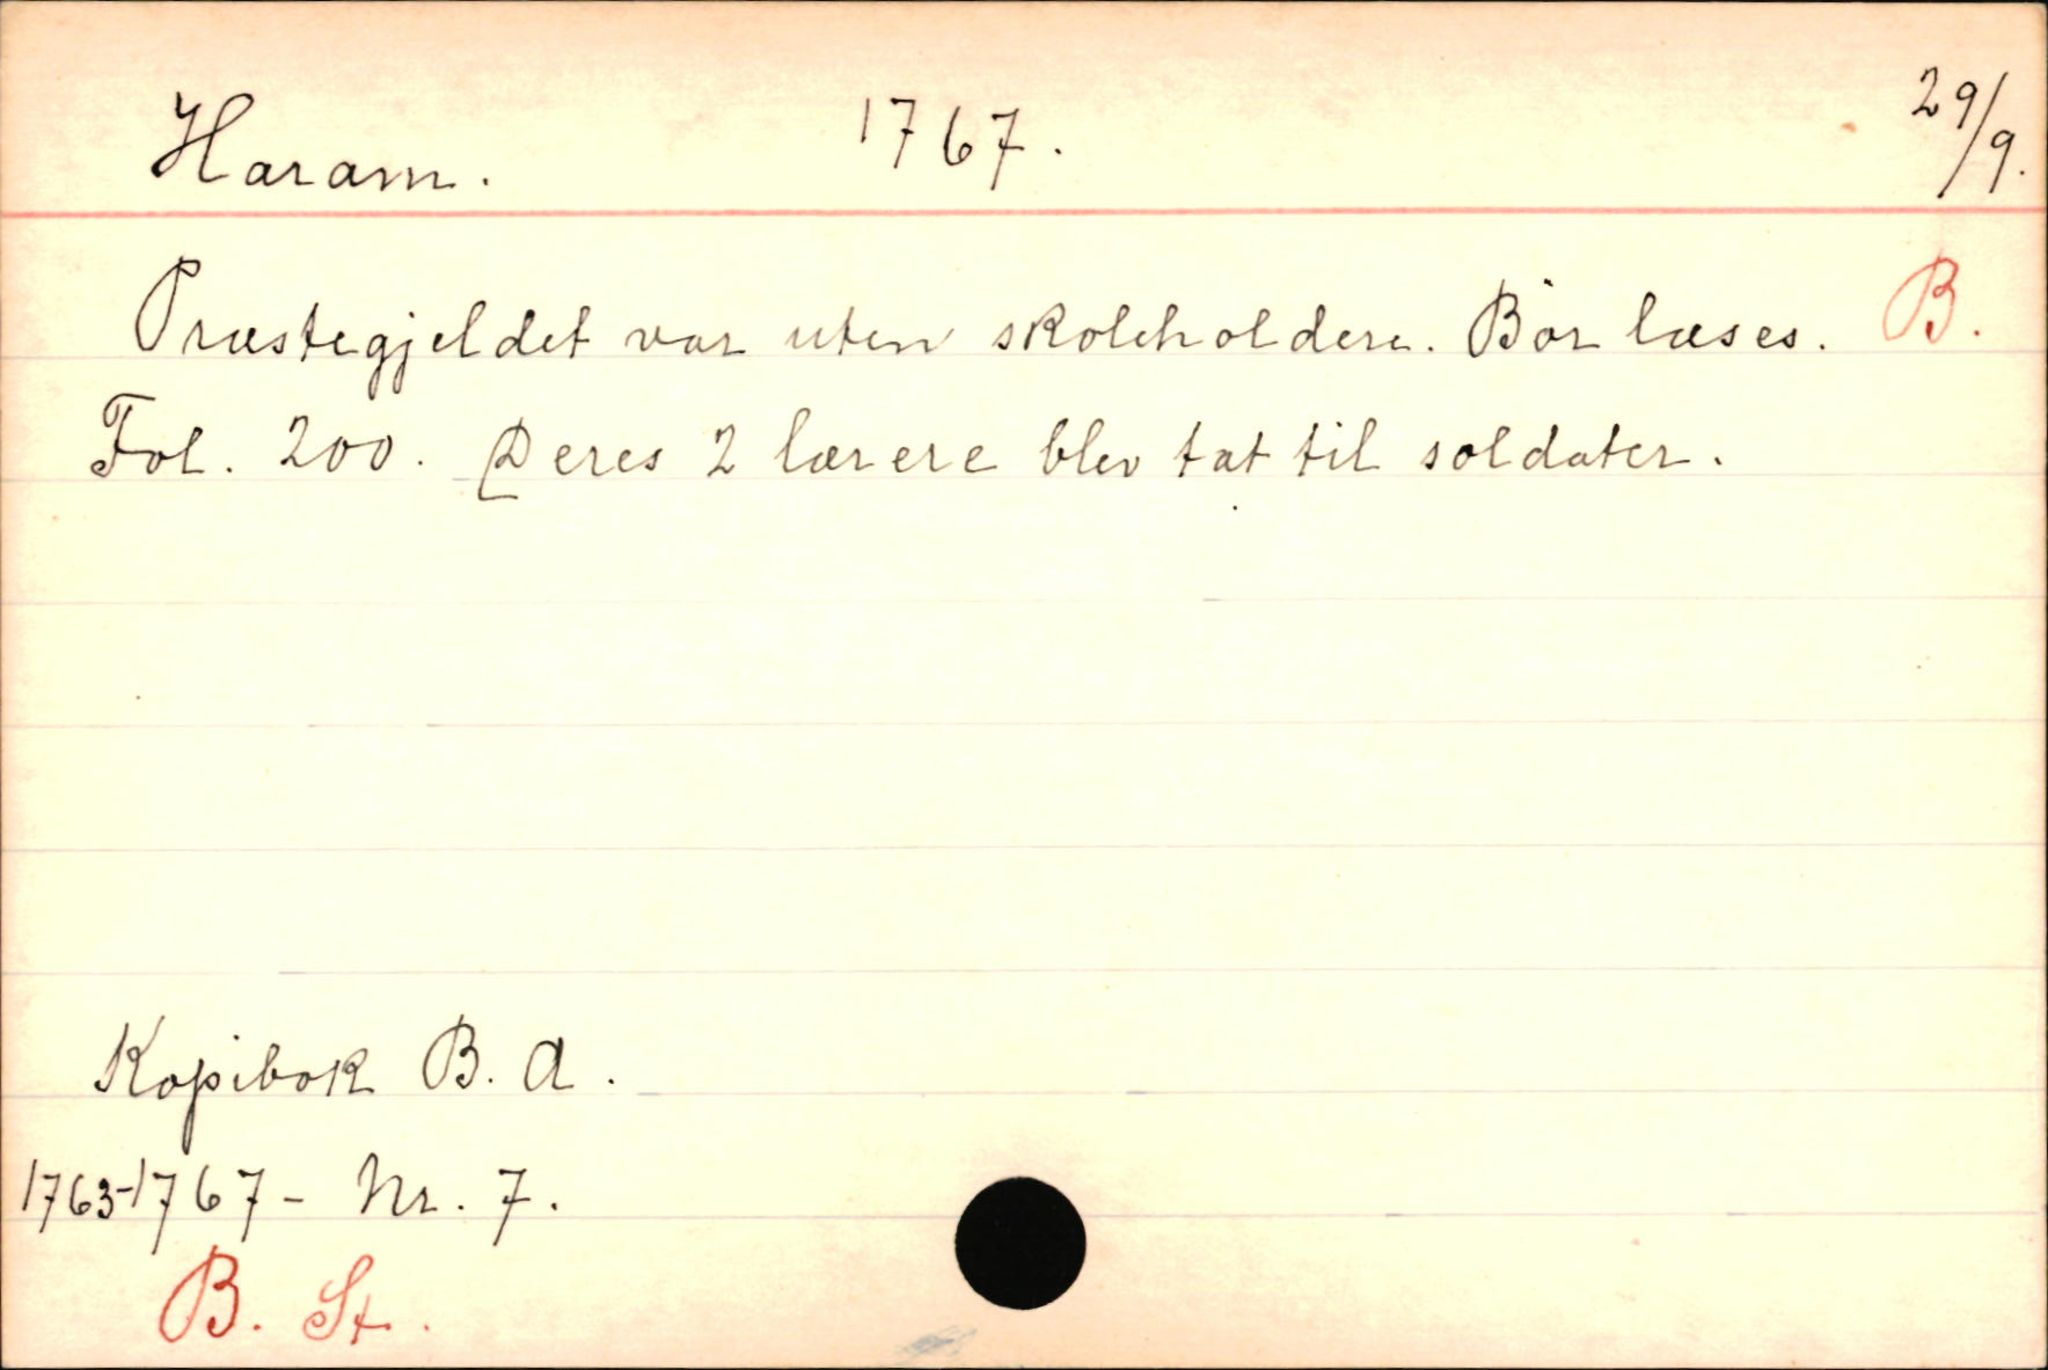 Haram. 1767. 29/9.
Præstegjeldet var uten skoleholdere. Bør læses. B.
Fol. 200. Deres 2 lærere blev tat til soldater.
Kopibok B. A.
1763-1767 - Nr. 7.
B. St.